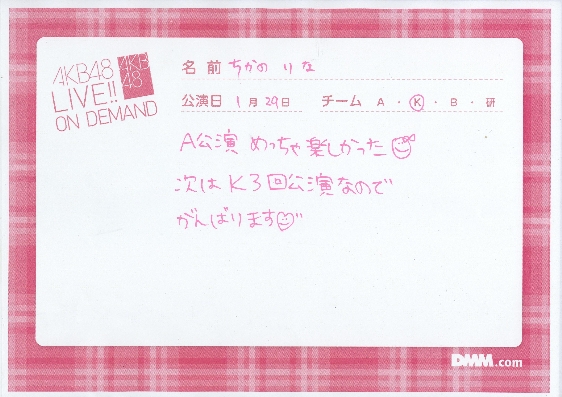 AKB48
LIVE!!
ON DEMAND
AKB
48
名前 ちかの りな
公演日 1月29日 チーム A・K・B・研
A公演 めっちゃ楽しかった
次はK3回公演なので
がんばります
DMM.com